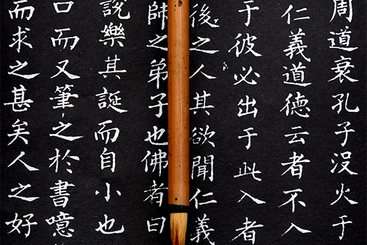 周道衰孔子没火于
仁義道德云者不入
于彼必出于此入者
後之人其欲聞仁義
師之弟子也佛者曰
說樂其誕而自小也
口而又筆之於書噫
而求之甚矣人之好